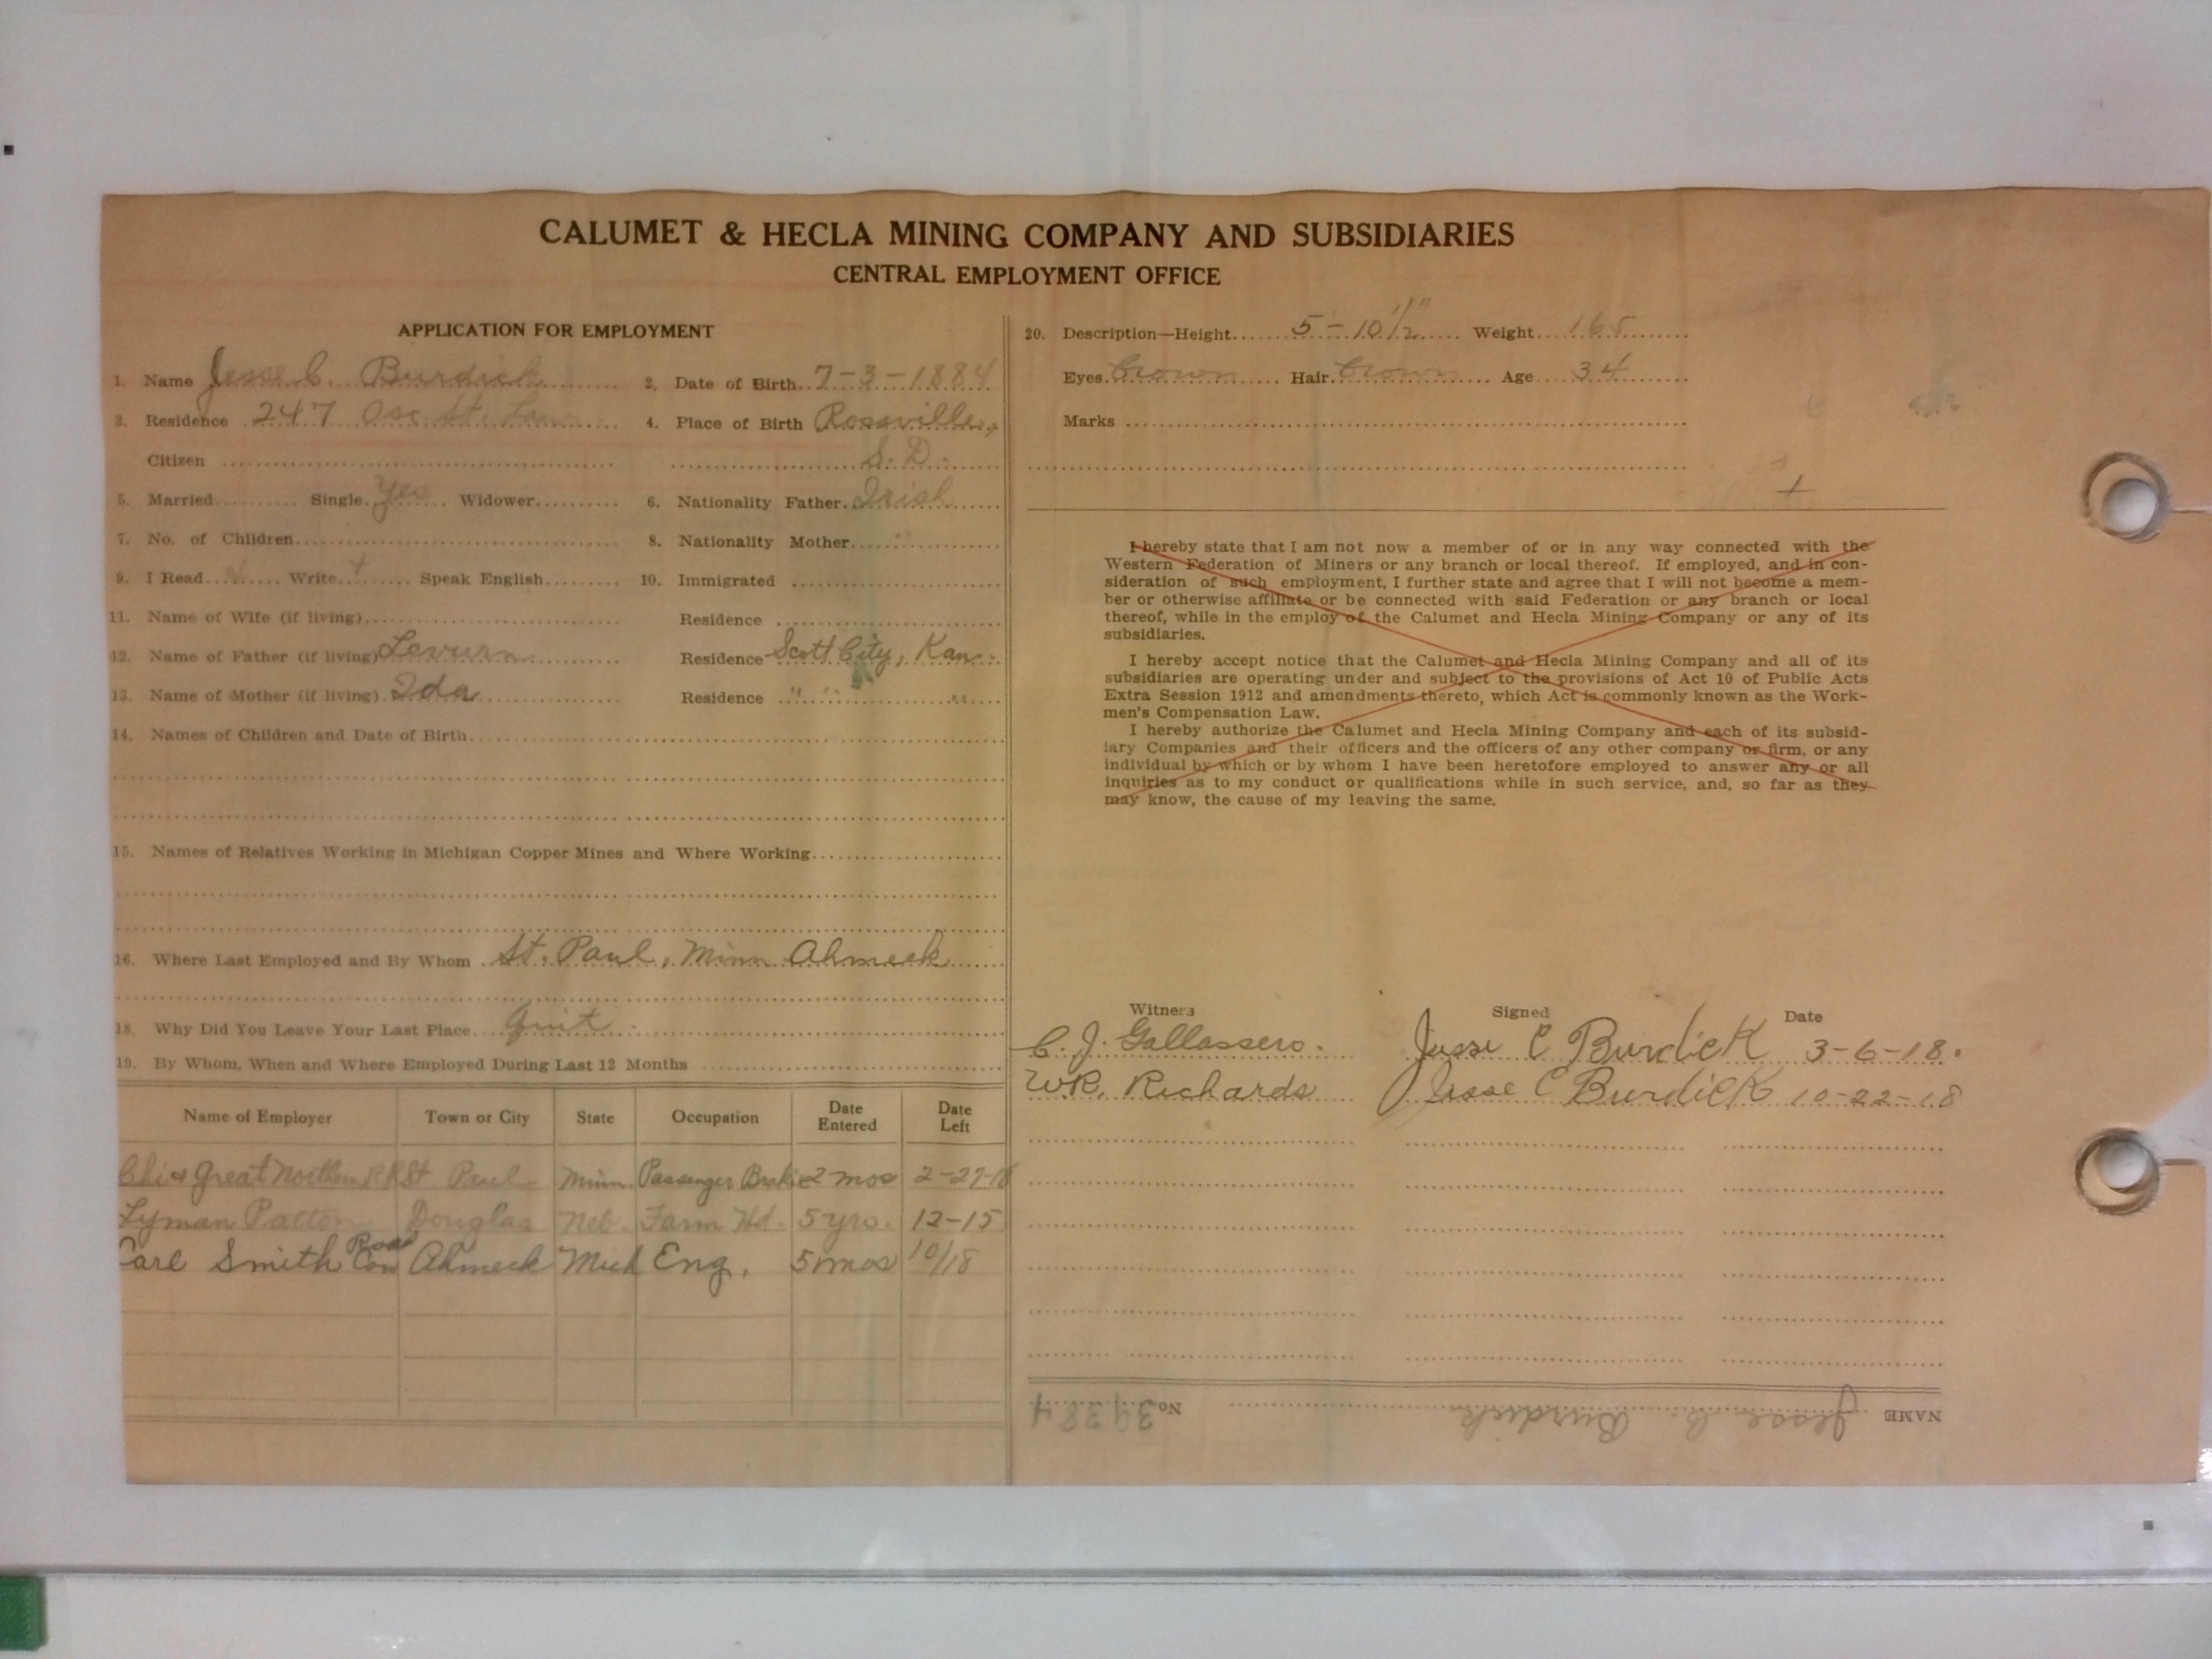 CALUMET & HECLA MINING COMPANY AND SUBSIDIARIES
CENTRAL EMPLOYMENT OFFICE
APPLICATION FOR EMPLOYMENT
1. Name Jesse C. Burdick 2. Date of Birth 7-3-1884
3. Residence 247 Osc. St. Laur 4. Place of Birth Rossville,
Citizen S. D.
5. Married Single Yes Widower 6. Nationality Father Irish
7. No. of Children 8. Nationality Mother "
9. I Read Write + Speak English 10. Immigrated
11. Name of Wife (if living) Residence
12. Name of Father (if living) Levurn Residence Scott City, Kan.
13. Name of Mother (if living) Ida Residence " " "
14. Names of Children and Date of Birth
15. Names of Relatives Working in Michigan Copper Mines and Where Working
16. Where Last Employed and By Whom St. Paul, Minn Ahmeek
18. Why Did You Leave Your Last Place Quit
19. By Whom, When and Where Employed During Last 12 Months
Name of Employer Town or City State Occupation Date Entered Date Left
Chi & Great Northern RR St Paul Minn. Passenger Brake 2 mos 2-27-18
Lyman Patton Douglas Neb. Farm Hd. 5 yrs. 12-15
Carl Smith Road Con Ahmeek Mich Eng. 5 mos 10/18
20. Description—Height 5'-10 1/2" Weight 165
Eyes brown Hair brown Age 34
Marks
+
I hereby state that I am not now a member of or in any way connected with the
Western Federation of Miners or any branch or local thereof. If employed, and in con-
sideration of such employment, I further state and agree that I will not become a mem-
ber or otherwise affiliate or be connected with said Federation or any branch or local
thereof, while in the employ of the Calumet and Hecla Mining Company or any of its
subsidiaries.
I hereby accept notice that the Calumet and Hecla Mining Company and all of its
subsidiaries are operating under and subject to the provisions of Act 10 of Public Acts
Extra Session 1912 and amendments thereto, which Act is commonly known as the Work-
men's Compensation Law.
I hereby authorize the Calumet and Hecla Mining Company and each of its subsid-
iary Companies and their officers and the officers of any other company or firm, or any
individual by which or by whom I have been heretofore employed to answer any or all
inquiries as to my conduct or qualifications while in such service, and, so far as they
may know, the cause of my leaving the same.
Witness Signed Date
C. J. Gallassero. Jesse C Burdick 3-6-18.
W.R. Richards Jesse C Burdick 10-22-18
NAME Jesse C. Burdick No. 39384